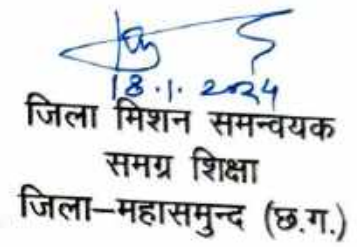 18.1.2024
जिला मिशन समन्वयक
समग्र शिक्षा
जिला–महासमुन्द (छ.ग.)